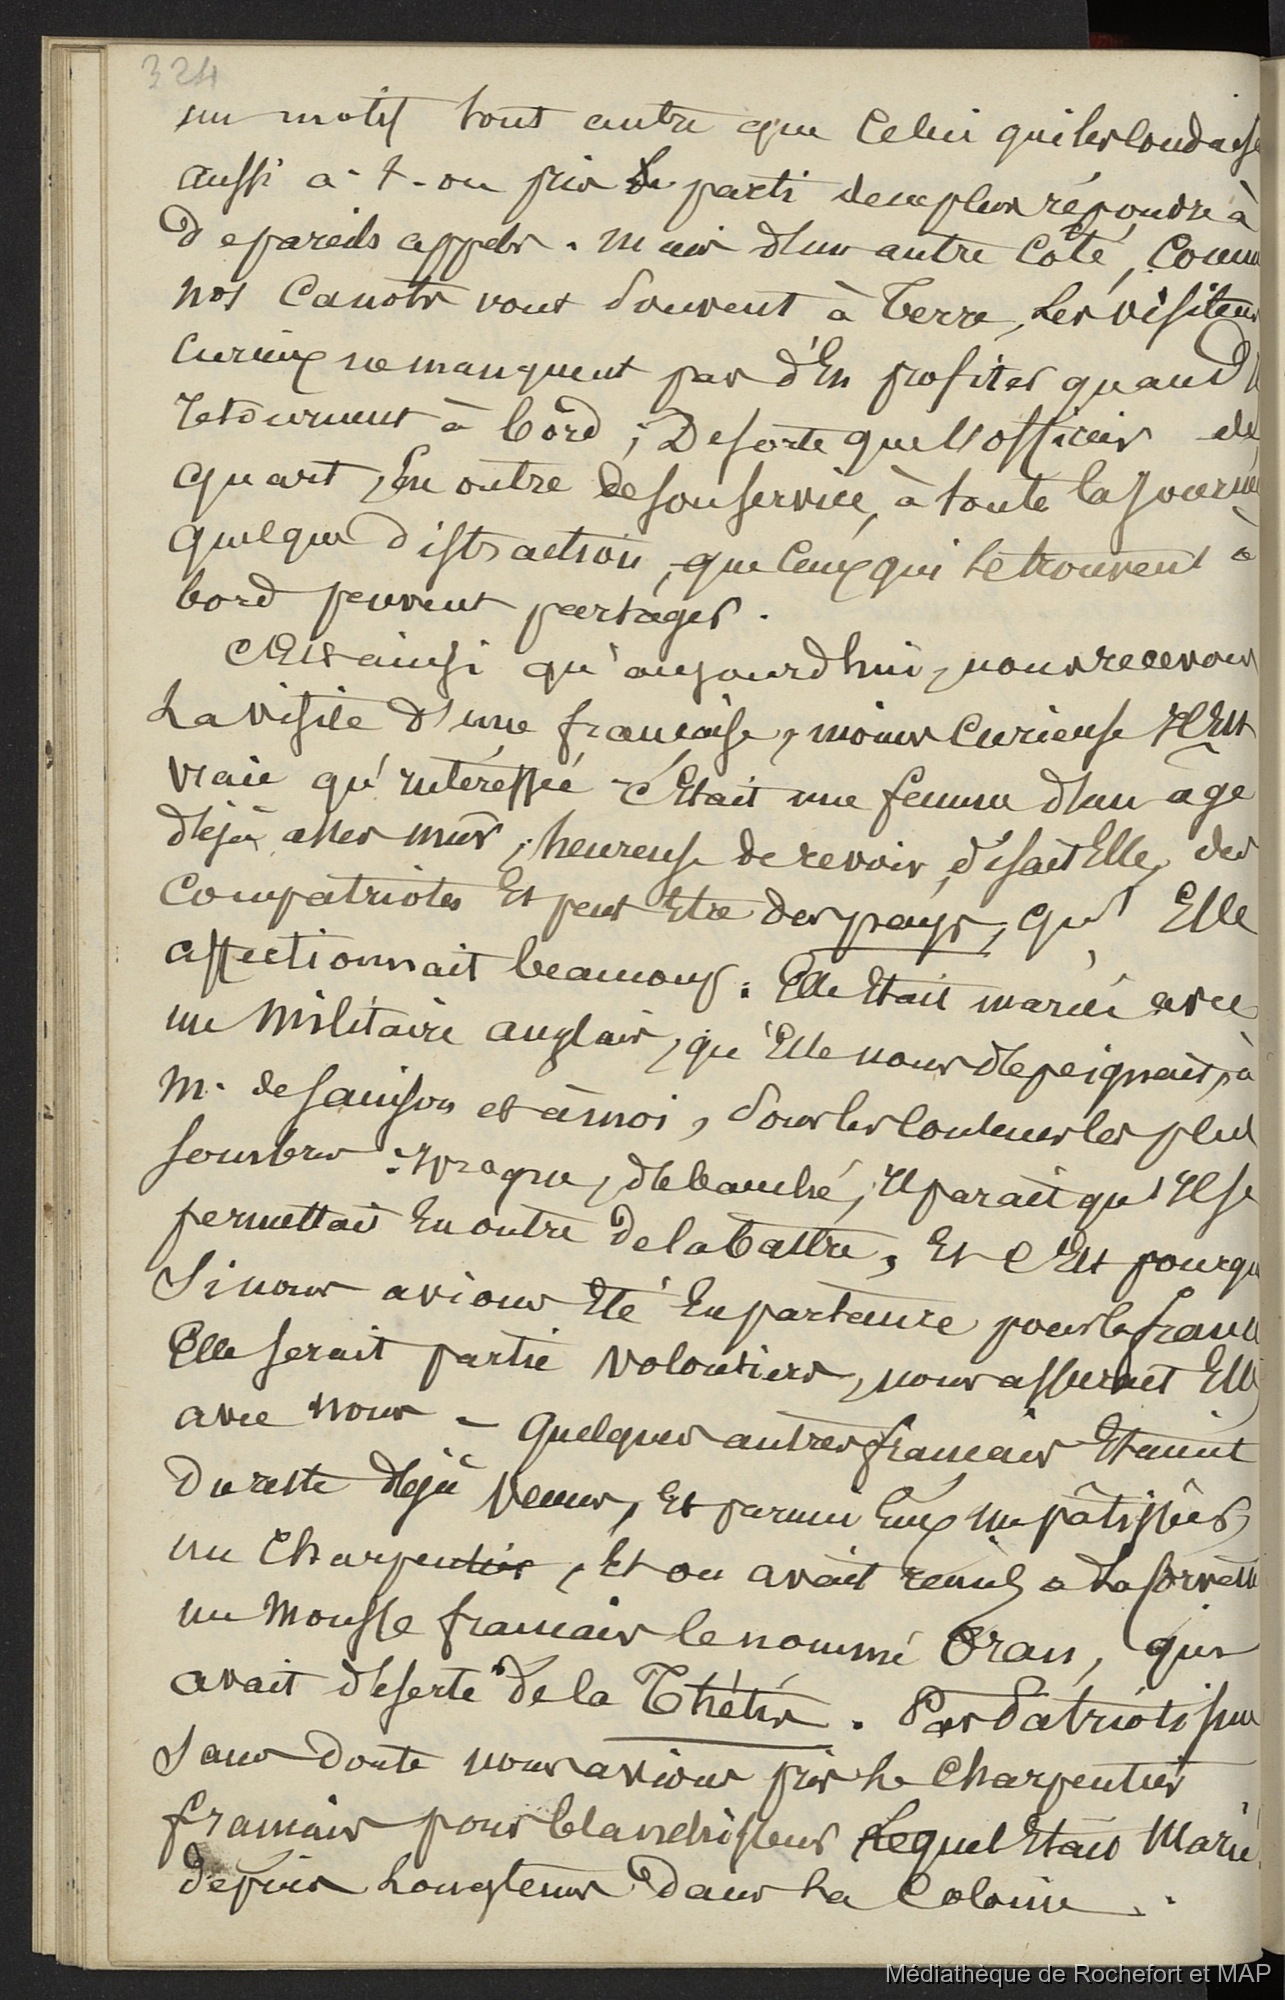 324
un motif tout autre que celui qui les conduise
aussi a-t-on pris le parti de ne plus répondre à
de pareils appels. Mais d'un autre côté, comme
nos canots vont souvent à terre, les visiteurs
curieux ne manquent pas d'en profiter quand
retournent à bord ; de sorte que l'officier de
quart, en outre de son service, à toute la journée
quelque distraction, que ceux qui se trouvent à
bord peuvent partager.
C'est ainsi qu'aujourd'hui, nous recevons
la visite d'une française, moins curieuse il est
vraie qu'intéressée – c'était une femme d'un âge
déjà assez mûr, heureuse de revoir, disait Elle, des
compatriotes et peut être des pays, qu'Elle
affectionnait beaucoup. Elle était mariée avec
un Militaire anglais, qu'Elle nous dépeignait, à
M. de Sainson et à moi, sous les couleurs les plus
sombres : ivrogne, débauché, il parait qu'il se
permettait en outre de la battre, et c'est pourquoi
si nous avions été en partance pour la france
Elle serait partie volontiers, nous assurait Elle
avec nous – quelques autres français étaient
du reste déjà venus, et parmi eux un pâtissier,
un charpentier, et on avait remis à la corvette
un mousse français le nommé Oran, qui
avait déserté de la Thétis. Par patriotisme
sans doute nous avions pris le charpentier
français pour blanchisseur lequel était marié
depuis longtems dans la colonie.
Médiathèque de Rochefort et MAP